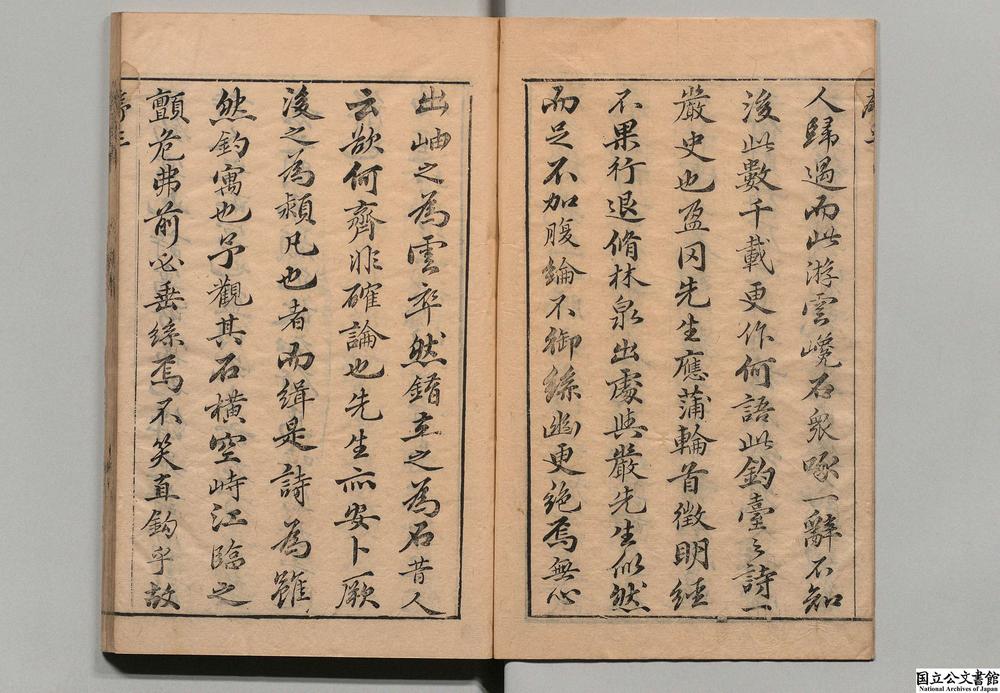 人歸過而此游雲巉石衆啄一辭不知
後此數千載更作何語此釣臺之詩一
嚴史也盈冈先生應蒲輪首徵明經
不果行退脩林泉出處與嚴先生似然
而足不加腹綸不御絲幽更絶焉無心
出岫之為雲卒然錯立之為石昔人
云欲何齊非確論也先生亦安卜厥
後之為頰凡也者而緝是詩為雖
然釣寓也予觀其石橫空峙江臨之
顫危弗前必垂絲焉不笑直鈎乎故
序二
国立公文書館
National Archives of Japan